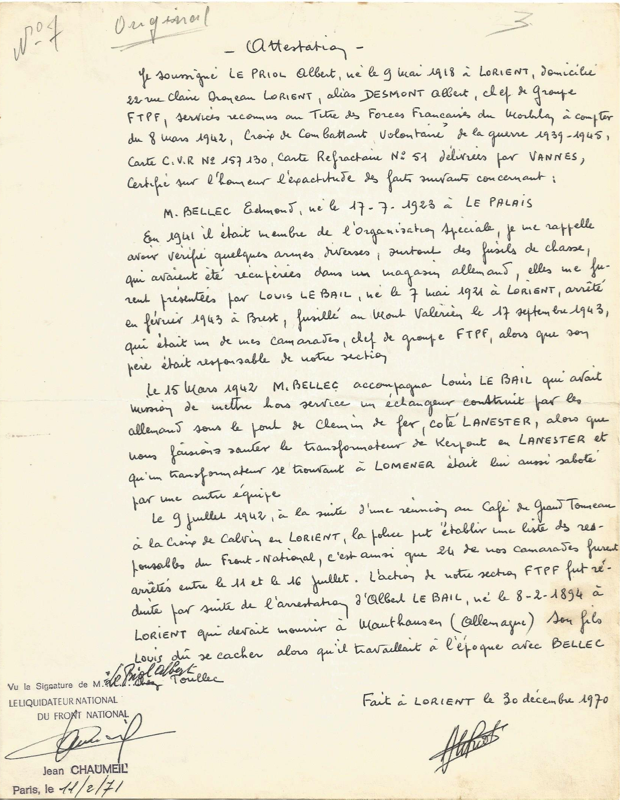 N° 7
Original
3
- Attestation -
Je soussigné LE PRIOL Albert, né le 9 mai 1918 à LORIENT, domicilié
22 rue Claire Droneau LORIENT, alias DESMONT Albert, chef de Groupe
FTPF, services reconnus au Titre des Forces Françaises du Morbihan à compter
du 8 Mars 1942, Croix de Combattant Volontaire de la guerre 1939-1945,
Carte C.V.R N° 157130, Carte Refractaire N° 51 délivrées par VANNES,
Certifie sur l'honneur l'exactitude des faits suivants concernant :
M. BELLEC Edmond, né le 17-7-1923 à LE PALAIS
En 1941 il était membre de l'Organisation Spéciale, je me rappelle
avoir vérifié quelques armes diverses, surtout des fusils de chasse,
qui avaient été recupérées dans un magasin allemand, elles me fu-
rent présentées par LOUIS LE BAIL, né le 7 mai 1921 à LORIENT, arrêté
en février 1943 à Brest, fusillé au Mont Valérien le 17 septembre 1943,
qui était un de mes camarades, chef de groupe FTPF, alors que son
père était responsable de notre section
Le 15 Mars 1942 M. BELLEC accompagna Louis LE BAIL qui avait
mission de mettre hors service un échangeur construit par les
allemand sous le pont de Chemin de fer, coté LANESTER, alors que
nous faisions sauter le transformateur de Kerpont en LANESTER et
qu'un transformateur se trouvant à LOMENER était lui aussi saboté
par une autre équipe
Le 9 juillet 1942, à la suite d'une réunion au Café du Grand Tonneau
à la Croix de Calvin en LORIENT, la police put établir une liste des res-
ponsables du Front-National, c'est ainsi que 24 de nos camarades furent
arrêtés entre le 11 et le 16 juillet. L'action de notre section FTPF fut ré-
duite par suite de l'arrestation d'Albert LE BAIL, né le 8-2-1894 à
LORIENT qui devait mourir à Mauthausen (Allemagne) Son fils
Louis dû se cacher alors qu'il travaillait à l'époque avec BELLEC
chez Toullec
Fait à LORIENT le 30 décembre 1970
Vu la Signature de M. Le Priol Albert
LE LIQUIDATEUR NATIONAL
DU FRONT NATIONAL
Jean CHAUMEIL
Paris, le 11/2/71